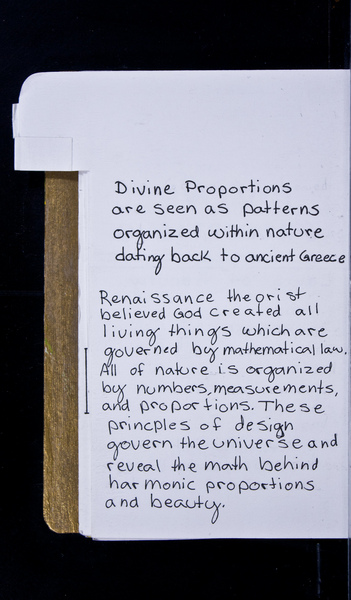 Divine Proportions
are seen as patterns
organized within nature
dating back to ancient Greece
Renaissance theorist
believed God created all
living things which are
governed by mathematical law.
All of nature is organized
by numbers, measurements,
and proportions. These
princples of design
govern the universe and
reveal the math behind
harmonic proportions
and beauty.